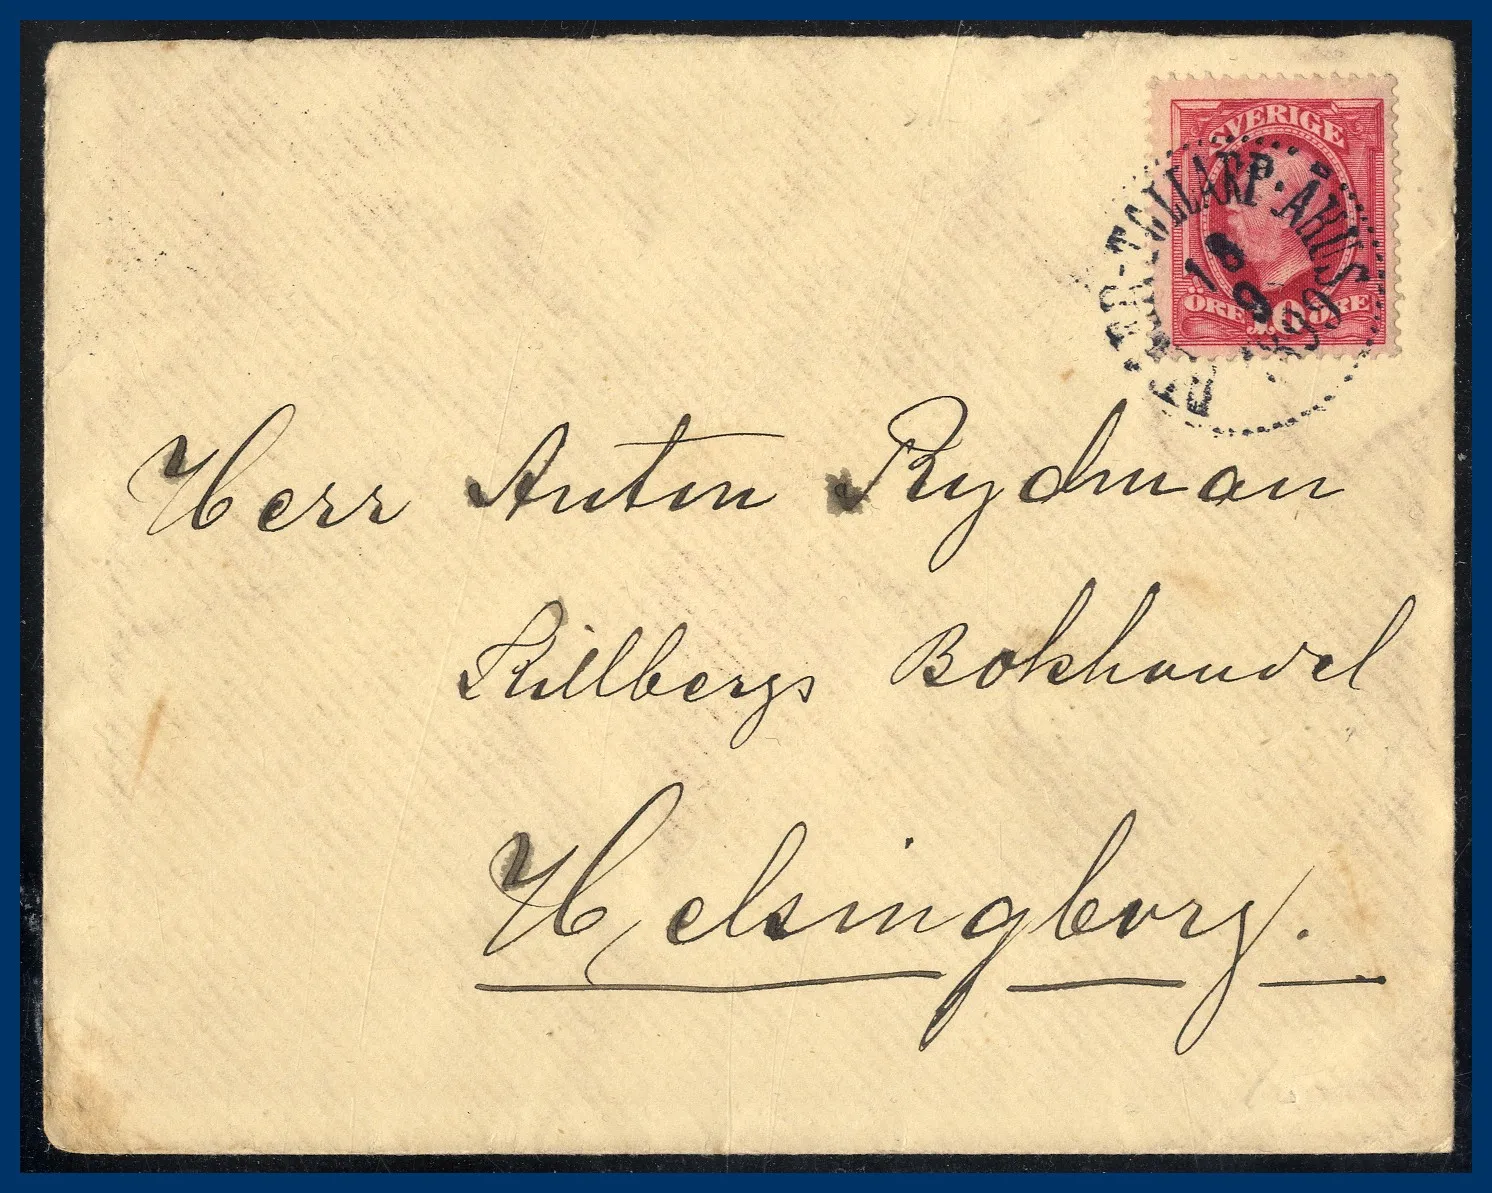 SVERIGE
ÖRE 10 ÖRE
TOLLARP·ÅHUS
18
9
1899
Herr Anton Rydman
Killbergs Bokhandel
Helsingborg.